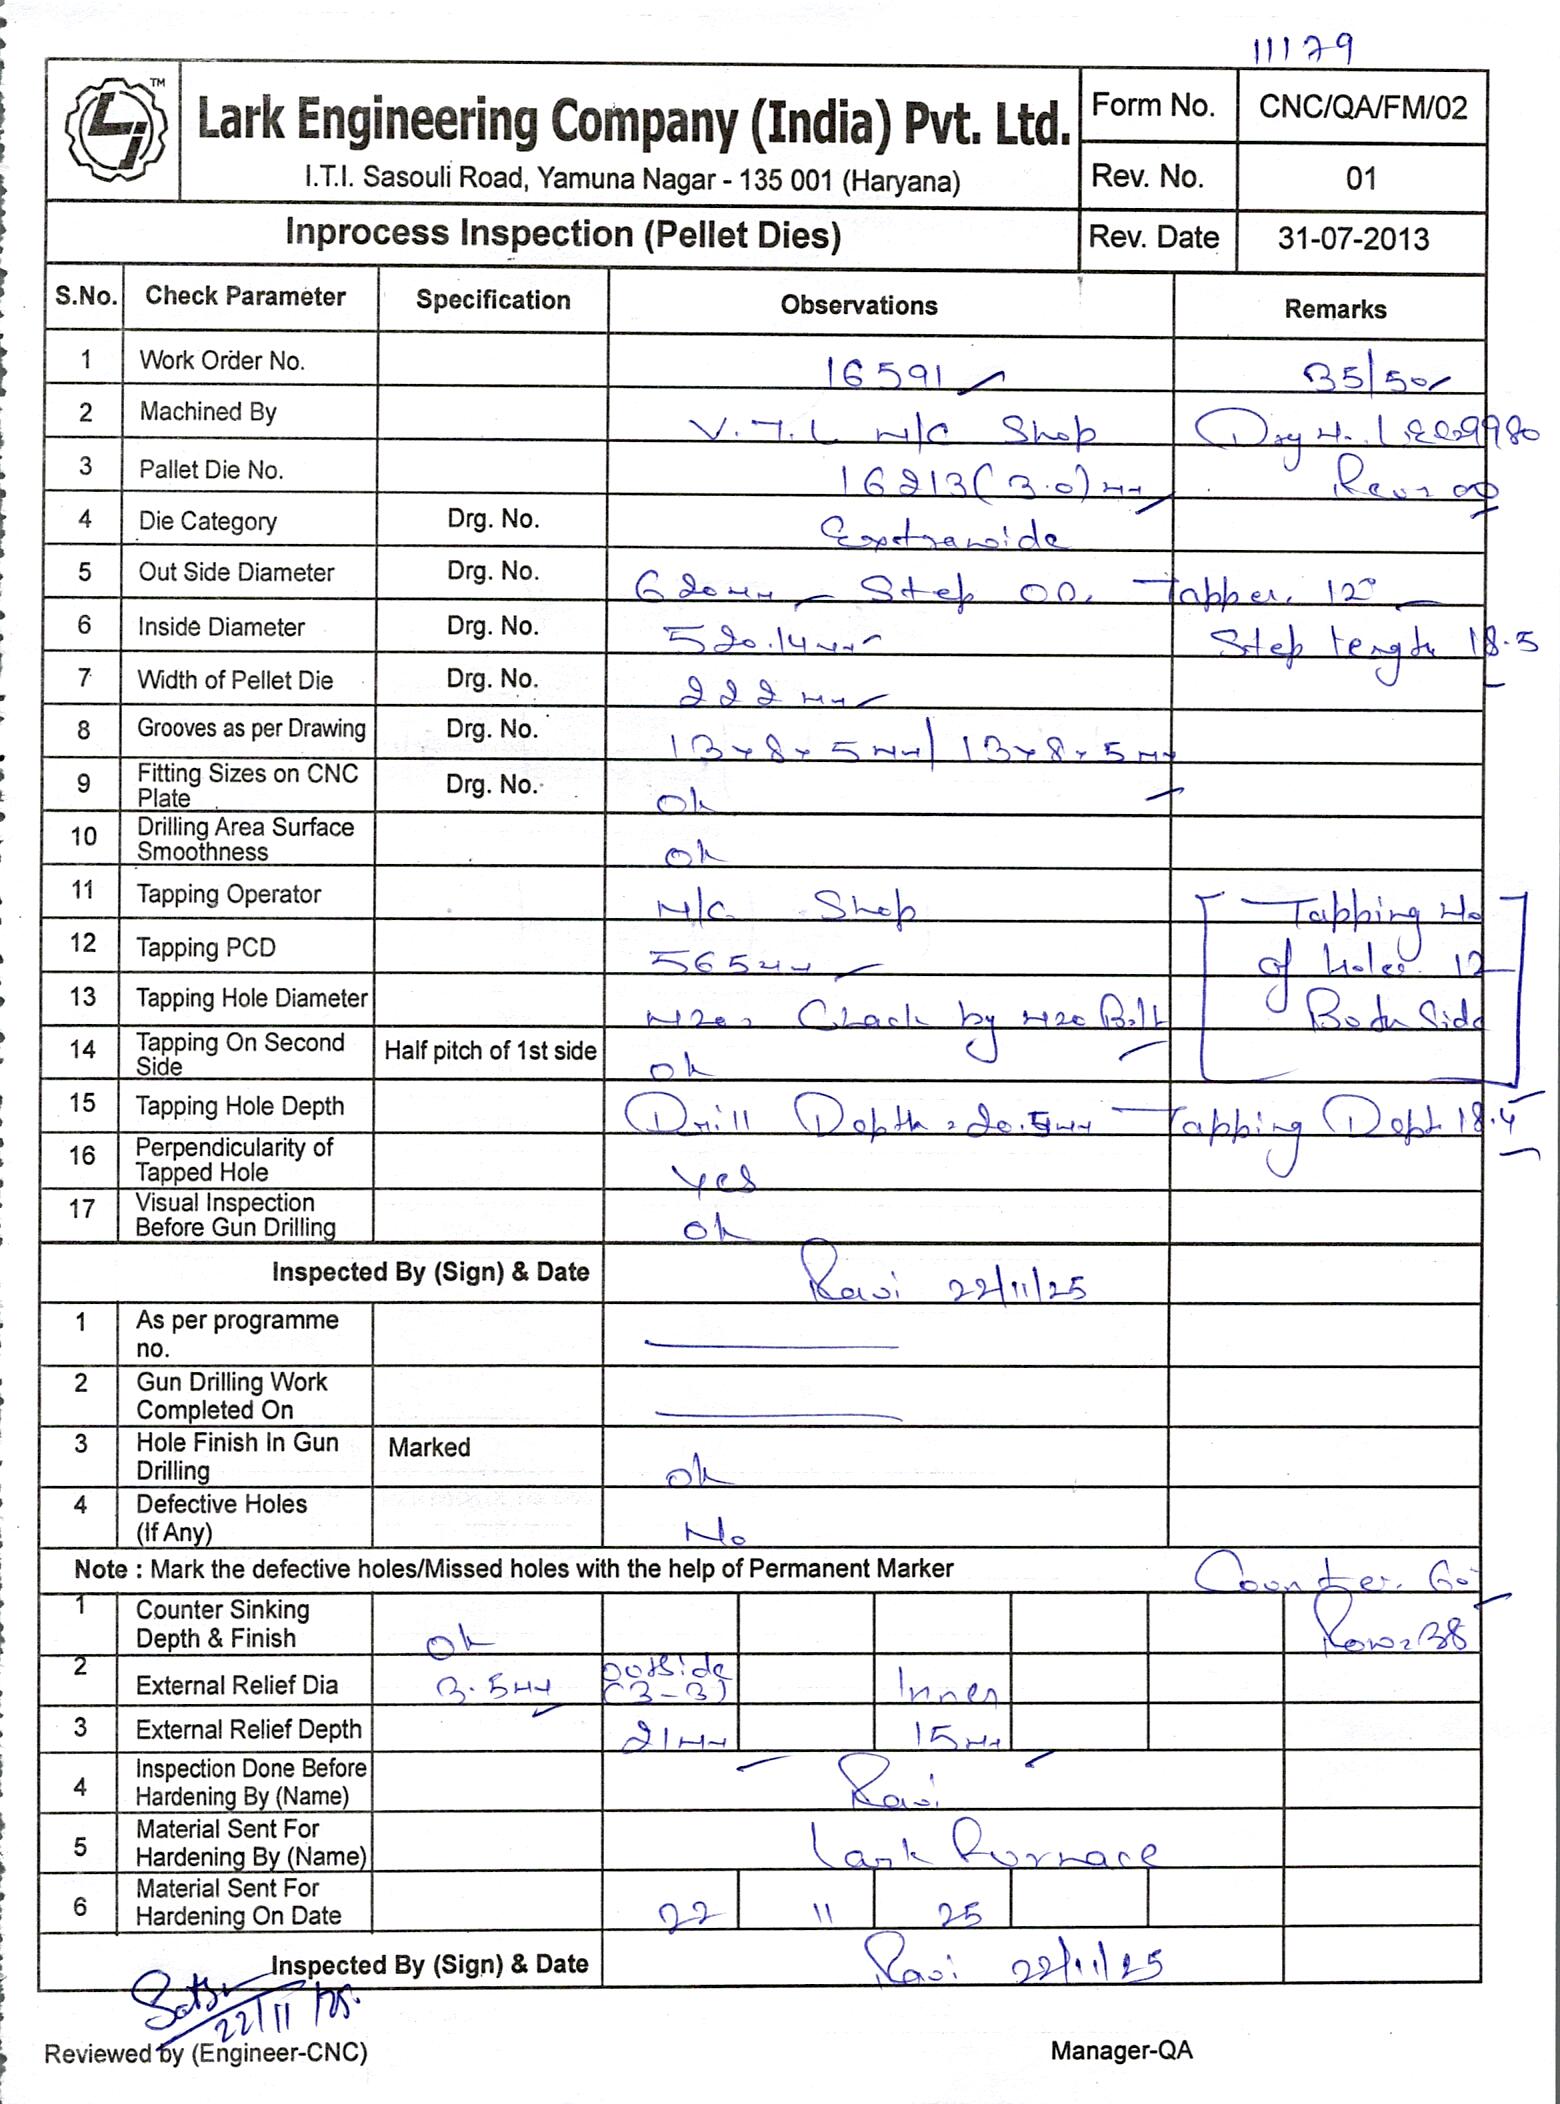 11179
TM
Lark Engineering Company (India) Pvt. Ltd.
I.T.I. Sasouli Road, Yamuna Nagar - 135 001 (Haryana)
Form No. CNC/QA/FM/02
Rev. No. 01
Inprocess Inspection (Pellet Dies)
Rev. Date 31-07-2013
S.No. Check Parameter Specification Observations Remarks
1 Work Order No. 16591 35/50
2 Machined By V.T.L M/C Shop
3 Pallet Die No. 16213 (3.0)mm
4 Die Category Drg. No. Expetrawide
5 Out Side Diameter Drg. No. 620mm Step OD. Tapper. 12°
6 Inside Diameter Drg. No. 520.14mm Step length 18.5
7 Width of Pellet Die Drg. No. 222mm
8 Grooves as per Drawing Drg. No. 13x8x5mm/13x8x5mm
9 Fitting Sizes on CNC
Plate Drg. No. Ok
10 Drilling Area Surface
Smoothness Ok
11 Tapping Operator M/C Shop Tapping No
12 Tapping PCD 565mm of holes 12
13 Tapping Hole Diameter M20, Chack by M20 Bolt Both Side
14 Tapping On Second
Side Half pitch of 1st side Ok
15 Tapping Hole Depth Drill Depth = 20.5mm Tapping Dept 18.4
16 Perpendicularity of
Tapped Hole Yes
17 Visual Inspection
Before Gun Drilling Ok
Inspected By (Sign) & Date Ravi 22/11/25
1 As per programme
no.
2 Gun Drilling Work
Completed On
3 Hole Finish In Gun
Drilling Marked Ok
4 Defective Holes
(If Any) No
Note : Mark the defective holes/Missed holes with the help of Permanent Marker Counter. 60°
1 Counter Sinking
Depth & Finish Ok Row=38
2 External Relief Dia 3.5mm outside (3-3) Inner
3 External Relief Depth 21mm 15mm
4 Inspection Done Before
Hardening By (Name) Ravi
5 Material Sent For
Hardening By (Name) Lark Furnace
6 Material Sent For
Hardening On Date 22 11 25
Inspected By (Sign) & Date Ravi 22/11/25
22/11/25.
Reviewed by (Engineer-CNC) Manager-QA